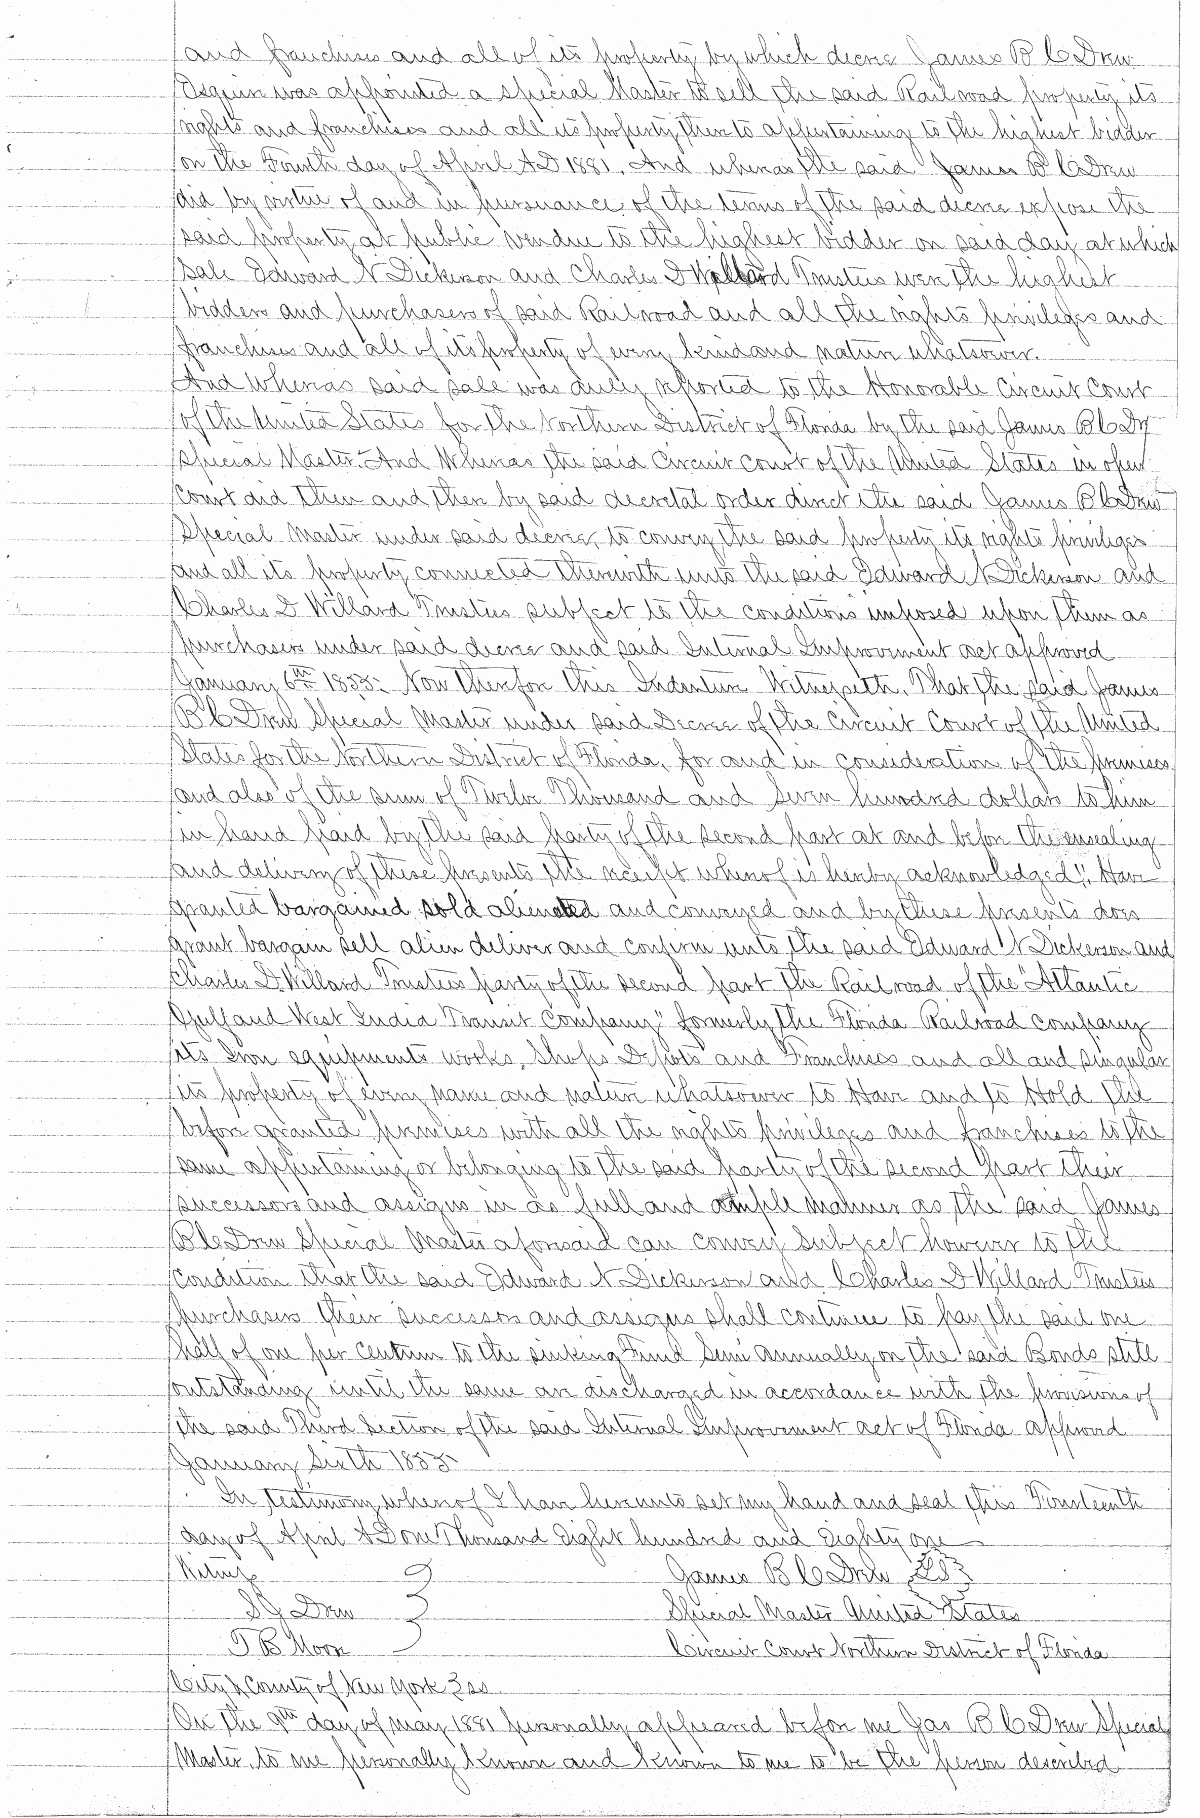 and franchises and all of its property by which decree James B C Drew
Esquire was appointed a special Master to sell the said Railroad property its
rights and franchises and all its property thereto appertaining to the highest bidder
on the Fourth day of April AD 1881. And whereas the said James B C Drew
did by virtue of and in pursuance of the terms of the said decree expose the
said property at public vendue to the highest bidder on said day at which
sale Edward N Dickerson and Charles D Willard Trustees were the highest
bidders and purchasers of said Railroad and all the rights privileges and
franchises and all of its property of every kind and nature whatsoever.
And Whereas said sale was duly reported to the Honorable Circuit Court
of the United States for the Northern District of Florida by the said James B C Dr
Special Master. And Whereas the said Circuit Court of the United States in open
Court did then and then by said decretal order direct the said James B C Drew
Special Master under said decree, to convey the said property its rights privileges
and all its property connected therewith unto the said Edward N Dickerson and
Charles D Willard Trustees subject to the conditions imposed upon them as
purchasers under said decree and said Internal Improvement act approved
January 6th 1855. Now therefore this Indenture Witnesseth, That the said James
B C Drew Special Master under said Decree of the Circuit Court of the United
States for the Northern District of Florida, for and in consideration of the premises
and also of the sum of Twelve Thousand and Seven hundred dollars to him
in hand paid by the said party of the second part at and before the ensealing
and delivery of these presents the receipt whereof is hereby acknowledged". Have
granted bargained sold aliened and conveyed and by these presents does
grant bargain sell alien deliver and confirm unto the said Edward N Dickerson and
Charles D Willard Trustees party of the second part the Railroad of the "Atlantic
Gulf and West India Transit Company" formerly the Florida Railroad Company
its Iron equipments works, Shops Depots and Franchises and all and singular
its property of every name and nature whatsoever to Have and to Hold the
before granted premises with all the rights privileges and franchises to the
same appertaining or belonging to the said party of the second part their
successors and assigns in as full and ample manner as the said James
B C Drew Special Master aforesaid can convey subject however to the
condition that the said Edward N Dickerson and Charles D Willard Trustees
purchasers their successors and assigns shall continue to pay the said one
half of one per centum to the sinking Fund Semi Annually on the said Bonds still
outstanding until the same are discharged in accordance with the provisions of
the said Third Section of the said Internal Improvement act of Florida approved
January Sixth 1855
In testimony whereof I have hereunto set my hand and seal this Fourteenth
day of April A D One Thousand Eight hundred and Eighty one
Witness James B C Drew LS
S J Drew Special Master United States
T B Moon Circuit Court Northern District of Florida
City & County of New York } ss
On the 9th day of May 1881 personally appeared before me Jas B C Drew Special
Master, to me personally known and known to me to be the person described